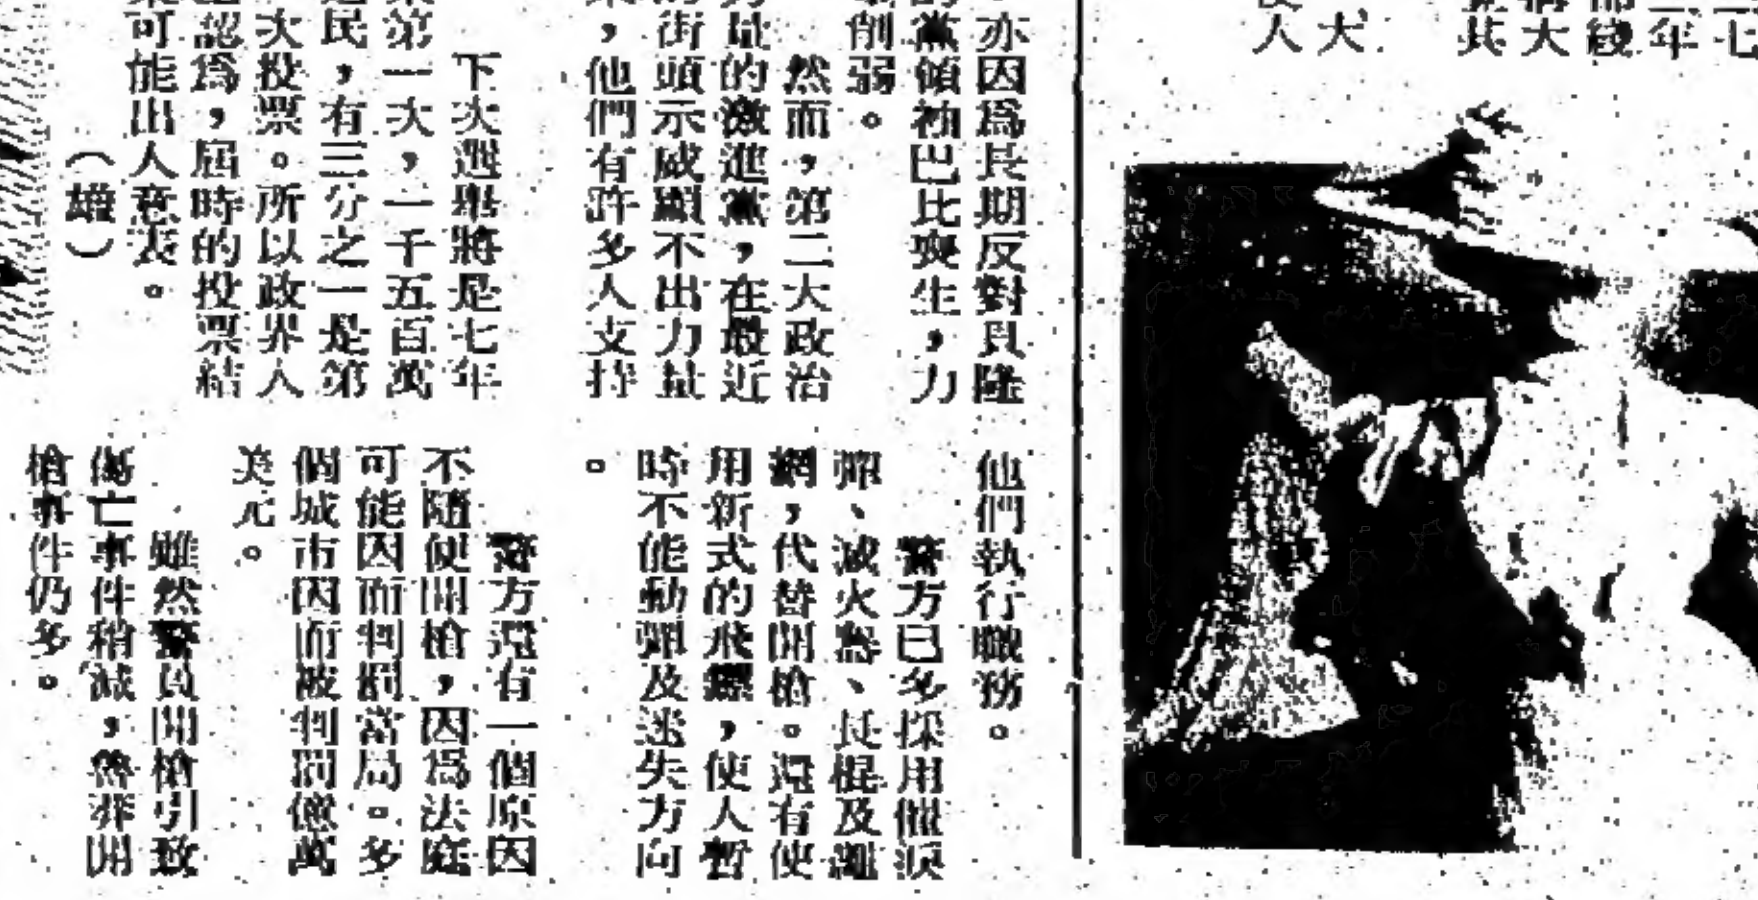 七
年
綫
大
其
犬
人
亦因爲長期反對貝隆
黨領袖巴比喪生，力
削弱。
然而，第二大政治
力量的激進黨，在最近
街頭示威顯不出力量
，他們有許多人支持
下次選舉將是七年
第一次，一千五百萬
民，有三分之一是第
次投票。所以政界人
認爲，屆時的投票結
可能出人意表。
（雄）
他們執行職務。
警方已多採用催淚
彈、滅火器、長棍及灑
網，代替開槍。還有使
用新式的飛鏢，使人暫
時不能動彈及迷失方向
。
警方還有一個原因
不隨便開槍，因爲法庭
可能因而判罰當局。多
個城市因而被判罰億萬
美元。
雖然警員開槍引致
傷亡事件稍減，黨開
槍事件仍多。